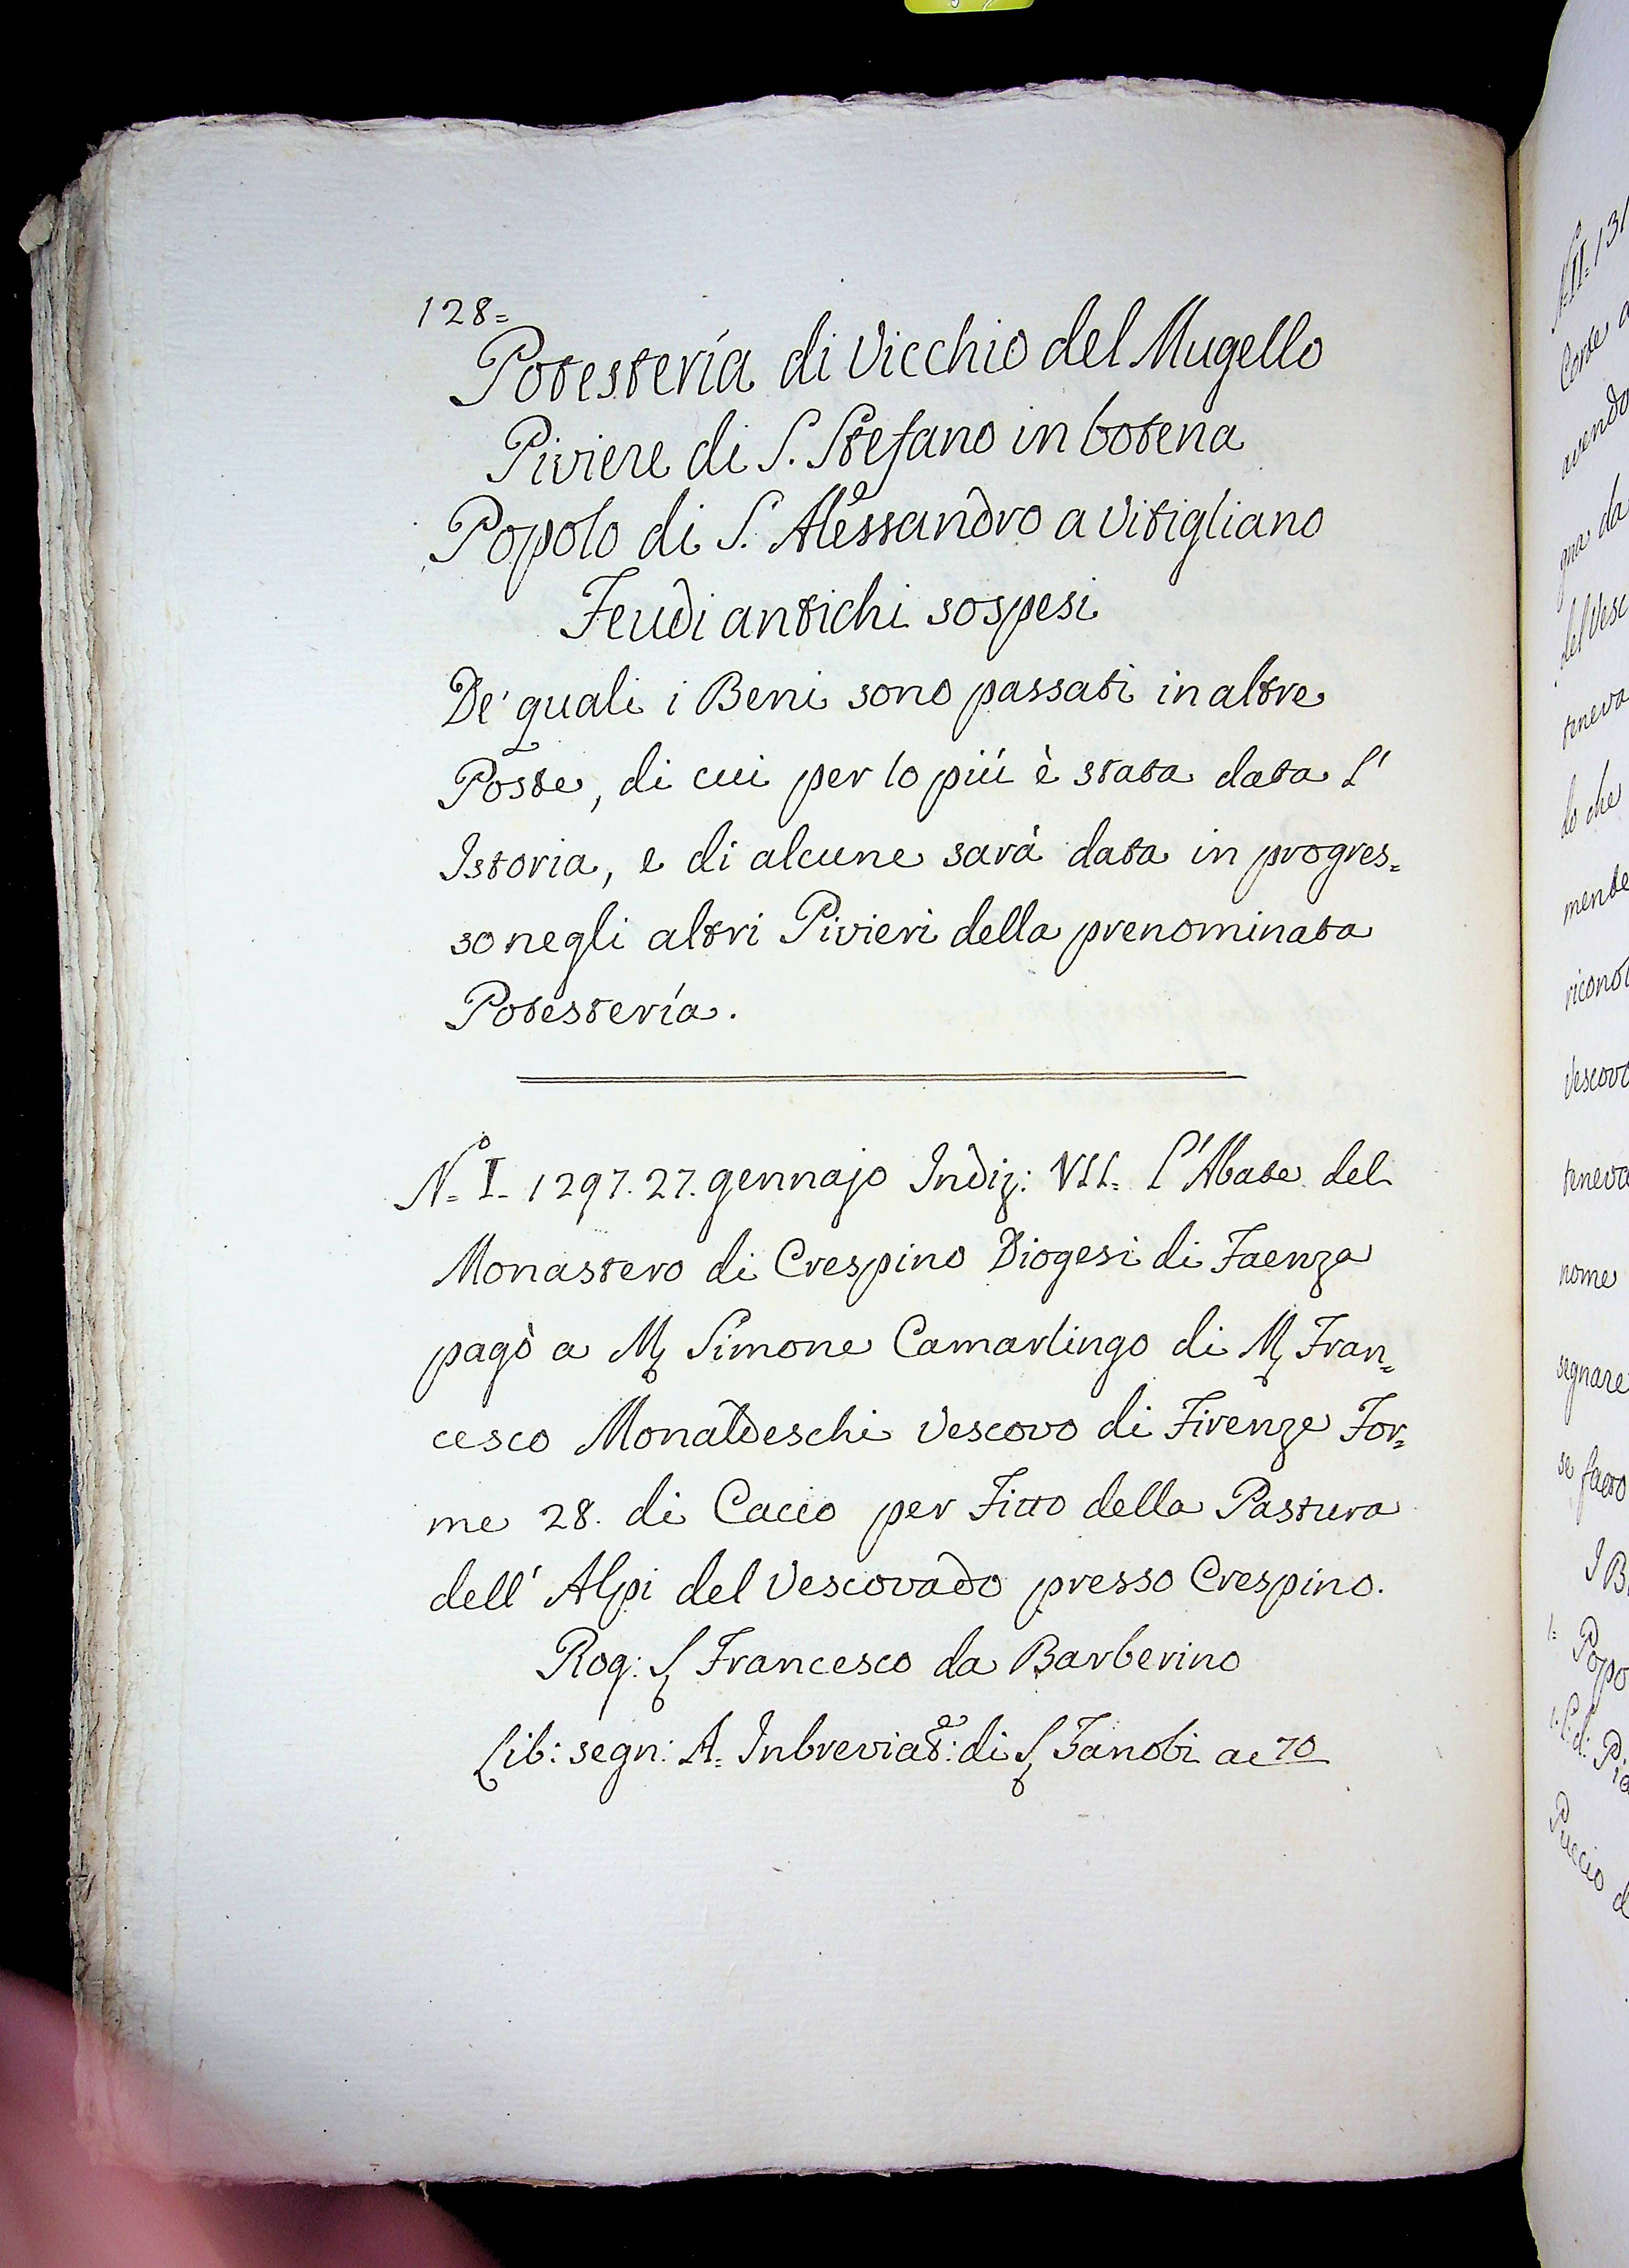 128=
Potestería di Vicchio del Mugello
Piviere di S. Stefano in botena
Popolo di S. Alessandro a Vitigliano
Feudi antichi sospesi
De' quali i Beni sono passati in altre
Poste, di cui per lo piú è stata data l'
Istoria, e di alcune sarà data in progres=
so negli altri Pivieri della prenominata
Potestería.
N.º I. 1297. 27. gennajo Indiz: VII. l'Abate del
Monastero di Crespino Diogesi di Faenza
pagò a M Simone Camarlingo di M Fran=
cesco Monaldeschi Vescovo di Firenze For=
me 28. di Cacio per Fitto della Pastura
dell' Alpi del Vescovado presso Crespino.
Rog: S Francesco da Barberino
Lib: segn: A. Inbreviat: di S Zanobi ac 70
Corte
avendo
gna da
del Vesc
teneva
do che
mente
Vescovo
teneva
nome
segnare
se fatto
Puccio d